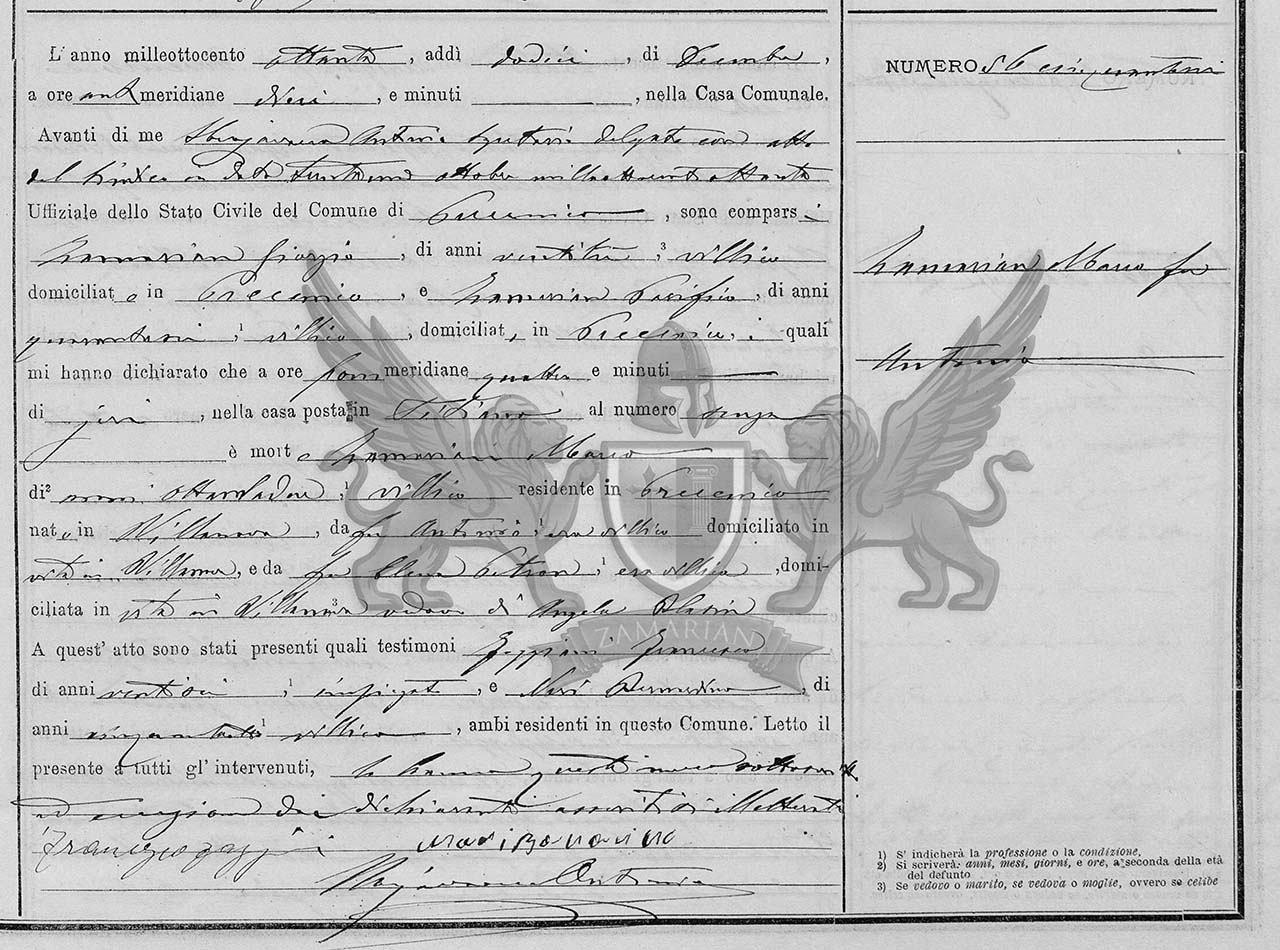 L' anno milleottocento ottanta, addì dodici, di Decembre,
a ore antimeridiane dieci, e minuti, nella Casa Comunale.
Avanti di me Antonio Segretario delegato con atto
del Sindaco in data ottobre milleottocentottanta
Uffiziale dello Stato Civile del Comune di Precenico, sono comparsi
Zamarian Giorgio, di anni ventitre, villico
domiciliato in Precenico, e Zamarian Pacifico, di anni
quarantasei, villico, domiciliat, in Precenico, i quali
mi hanno dichiarato che a ore pommeridiane quattro e minuti
di jeri, nella casa posta in Titiano al numero senza
è morto Zamarian Marco
di anni ottantadue, villico residente in Precenico
nato in Villanova, da fu Antonio era villico domiciliato in
vita in Villanova, e da fu Elena, era villica, domi-
ciliata in vita in Villanova vedovo di Angela
A quest' atto sono stati presenti quali testimoni Zoppini Francesco
di anni ventisei, impiegato, e Nari Bernardino, di
anni villico, ambi residenti in questo Comune. Letto il
presente a tutti gl' intervenuti, lo hanno questi meco sottoscritto
ad eccezione dei dichiaranti illetterati
Francesco
Antonio
NUMERO 56 cinquantasei
Zamarian Marco fu
Antonio
ZAMARIAN
1) S' indicherà la professione o la condizione,
2) Si scriverà: anni, mesi, giorni, e ore, a seconda della età
del defunto
3) Se vedovo o marito, se vedova o moglie, ovvero se celibe